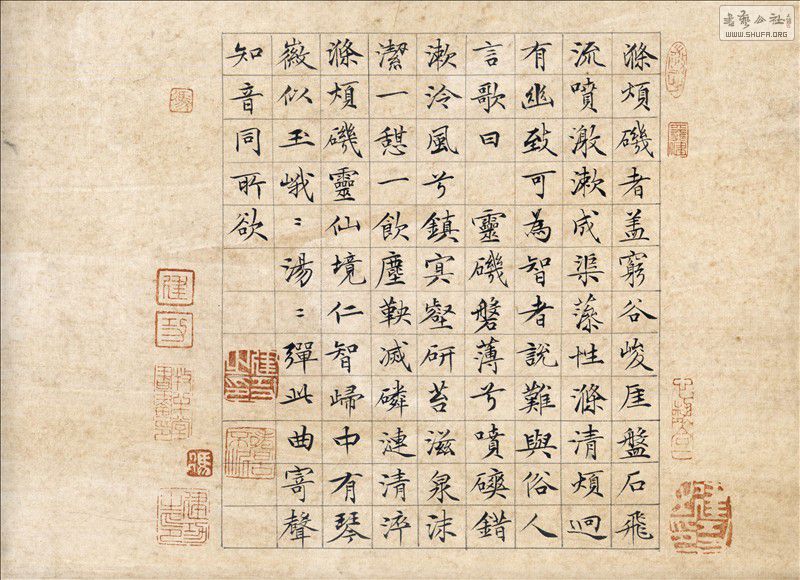 滌煩磯者盖窮谷峻厓盤石飛
流噴激漱成渠藻性滌清煩迥
有幽致可為智者說難與俗人
言歌曰 靈磯磐薄兮噴錯
漱泠風兮鎮冥壑研苔滋泉沫
潔一憩一飲塵鞅滅磷漣清淬
滌煩磯靈仙境仁智歸中有琴
徽似玉峨〻湯〻彈此曲寄聲
知音同所欲
書藝公社
WWW.SHUFA.ORG